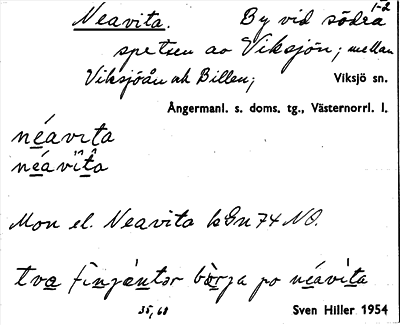 Neavita. By vid södra 1-2
spetsen av Viksjön; mellan
Viksjöån ok Billen; Viksjö sn.
Ångermanl. s. doms. tg., Västernorrl. l.
néavıta
néavîtâ
Mon el. Neavita bGn 74 NO.
tva fınjántər bòrja po néavìta
35,68
Sven Hiller 1954